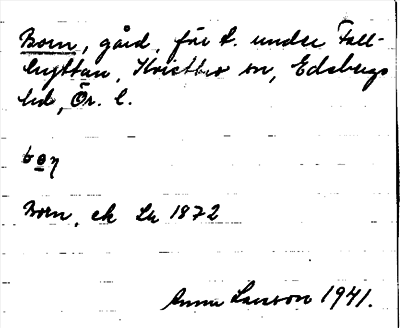 Born, gård, för t. under Fall-
hyttan, Kvistbro sn, Edsbergs
hd, Ör. l.
Born, ek Lk 1872
Anna Larsson 1941.